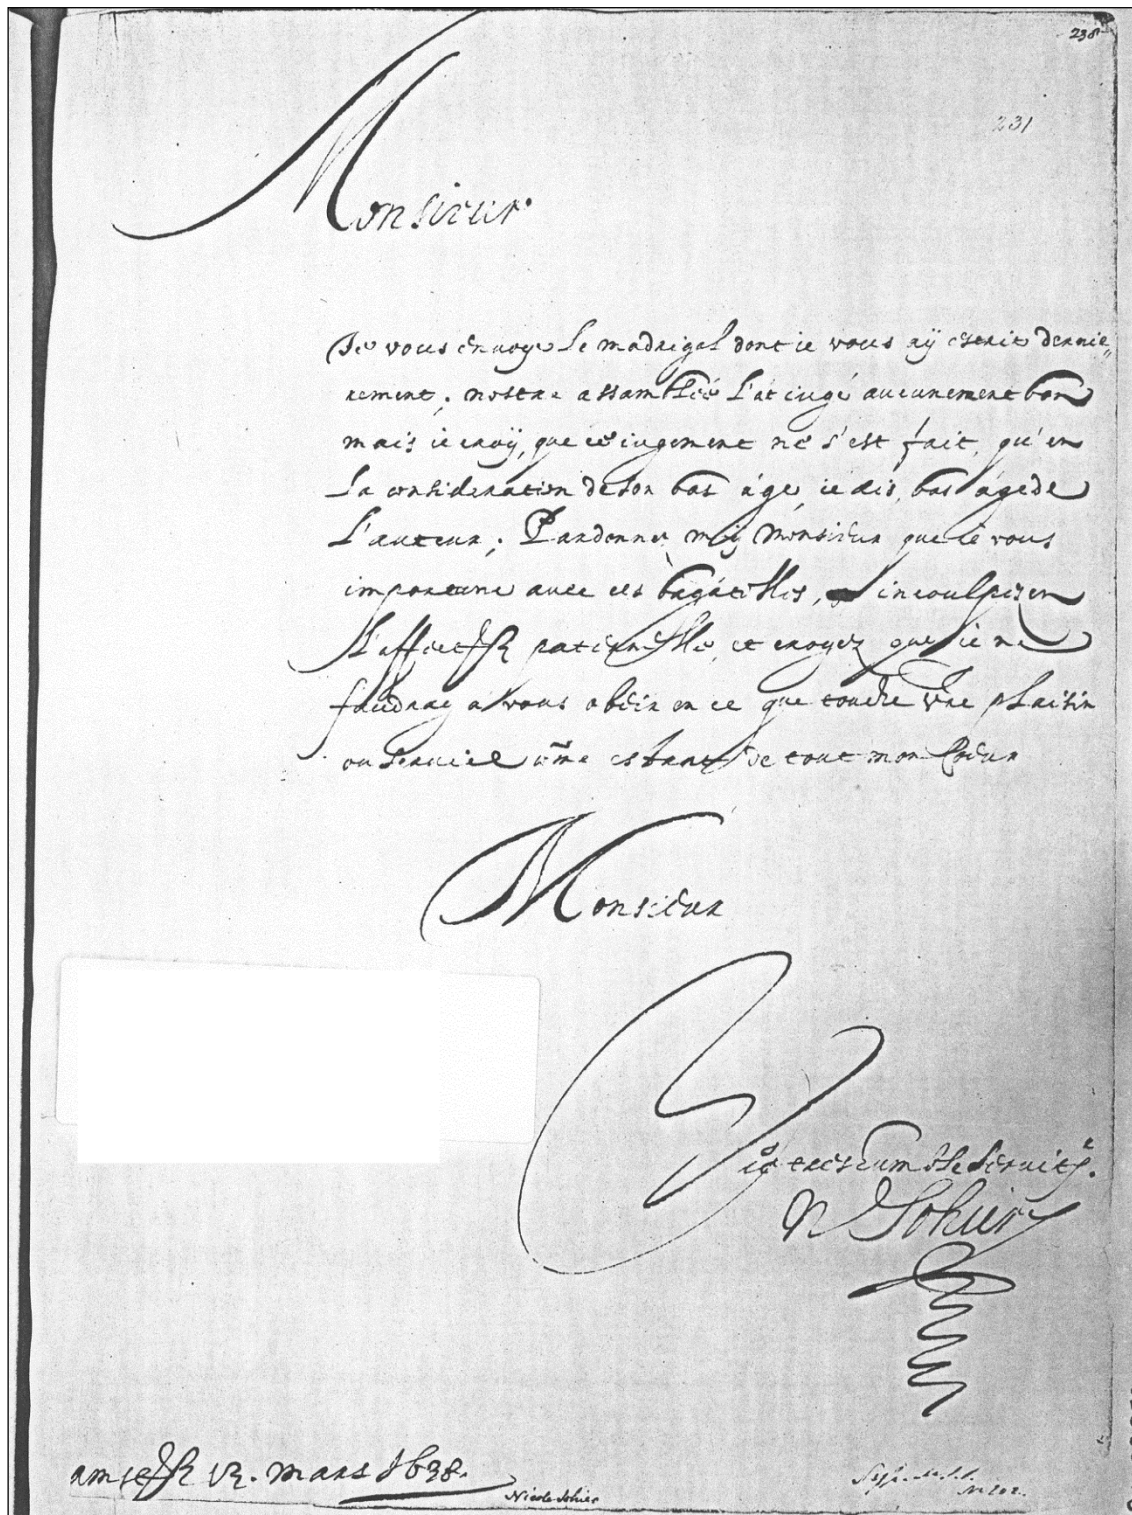 238
231
Monsieur
Je vous envoye le madrigal dont ie vous aÿ escrit dernie„
rement, nostre assamblée l'at iugé aucunement bon
mais ie croÿ, que ce iugement ne s'est fait, qu'en
la consideration de son bas âge, ie dis, bas âge de
l'auteur; Pardonnez moÿ Monsieur que ie vous
importune avec ces bagatelles, inculpez en
l'affect paternelle, et croyez que ie ne
faudraÿ a vous obeir en ce que touche vre plaisir
ou service estant de tout mon Coeur
Monsieur
treshumble servit.
N Sohier
12. mars 1638.
Nicolas Sohier